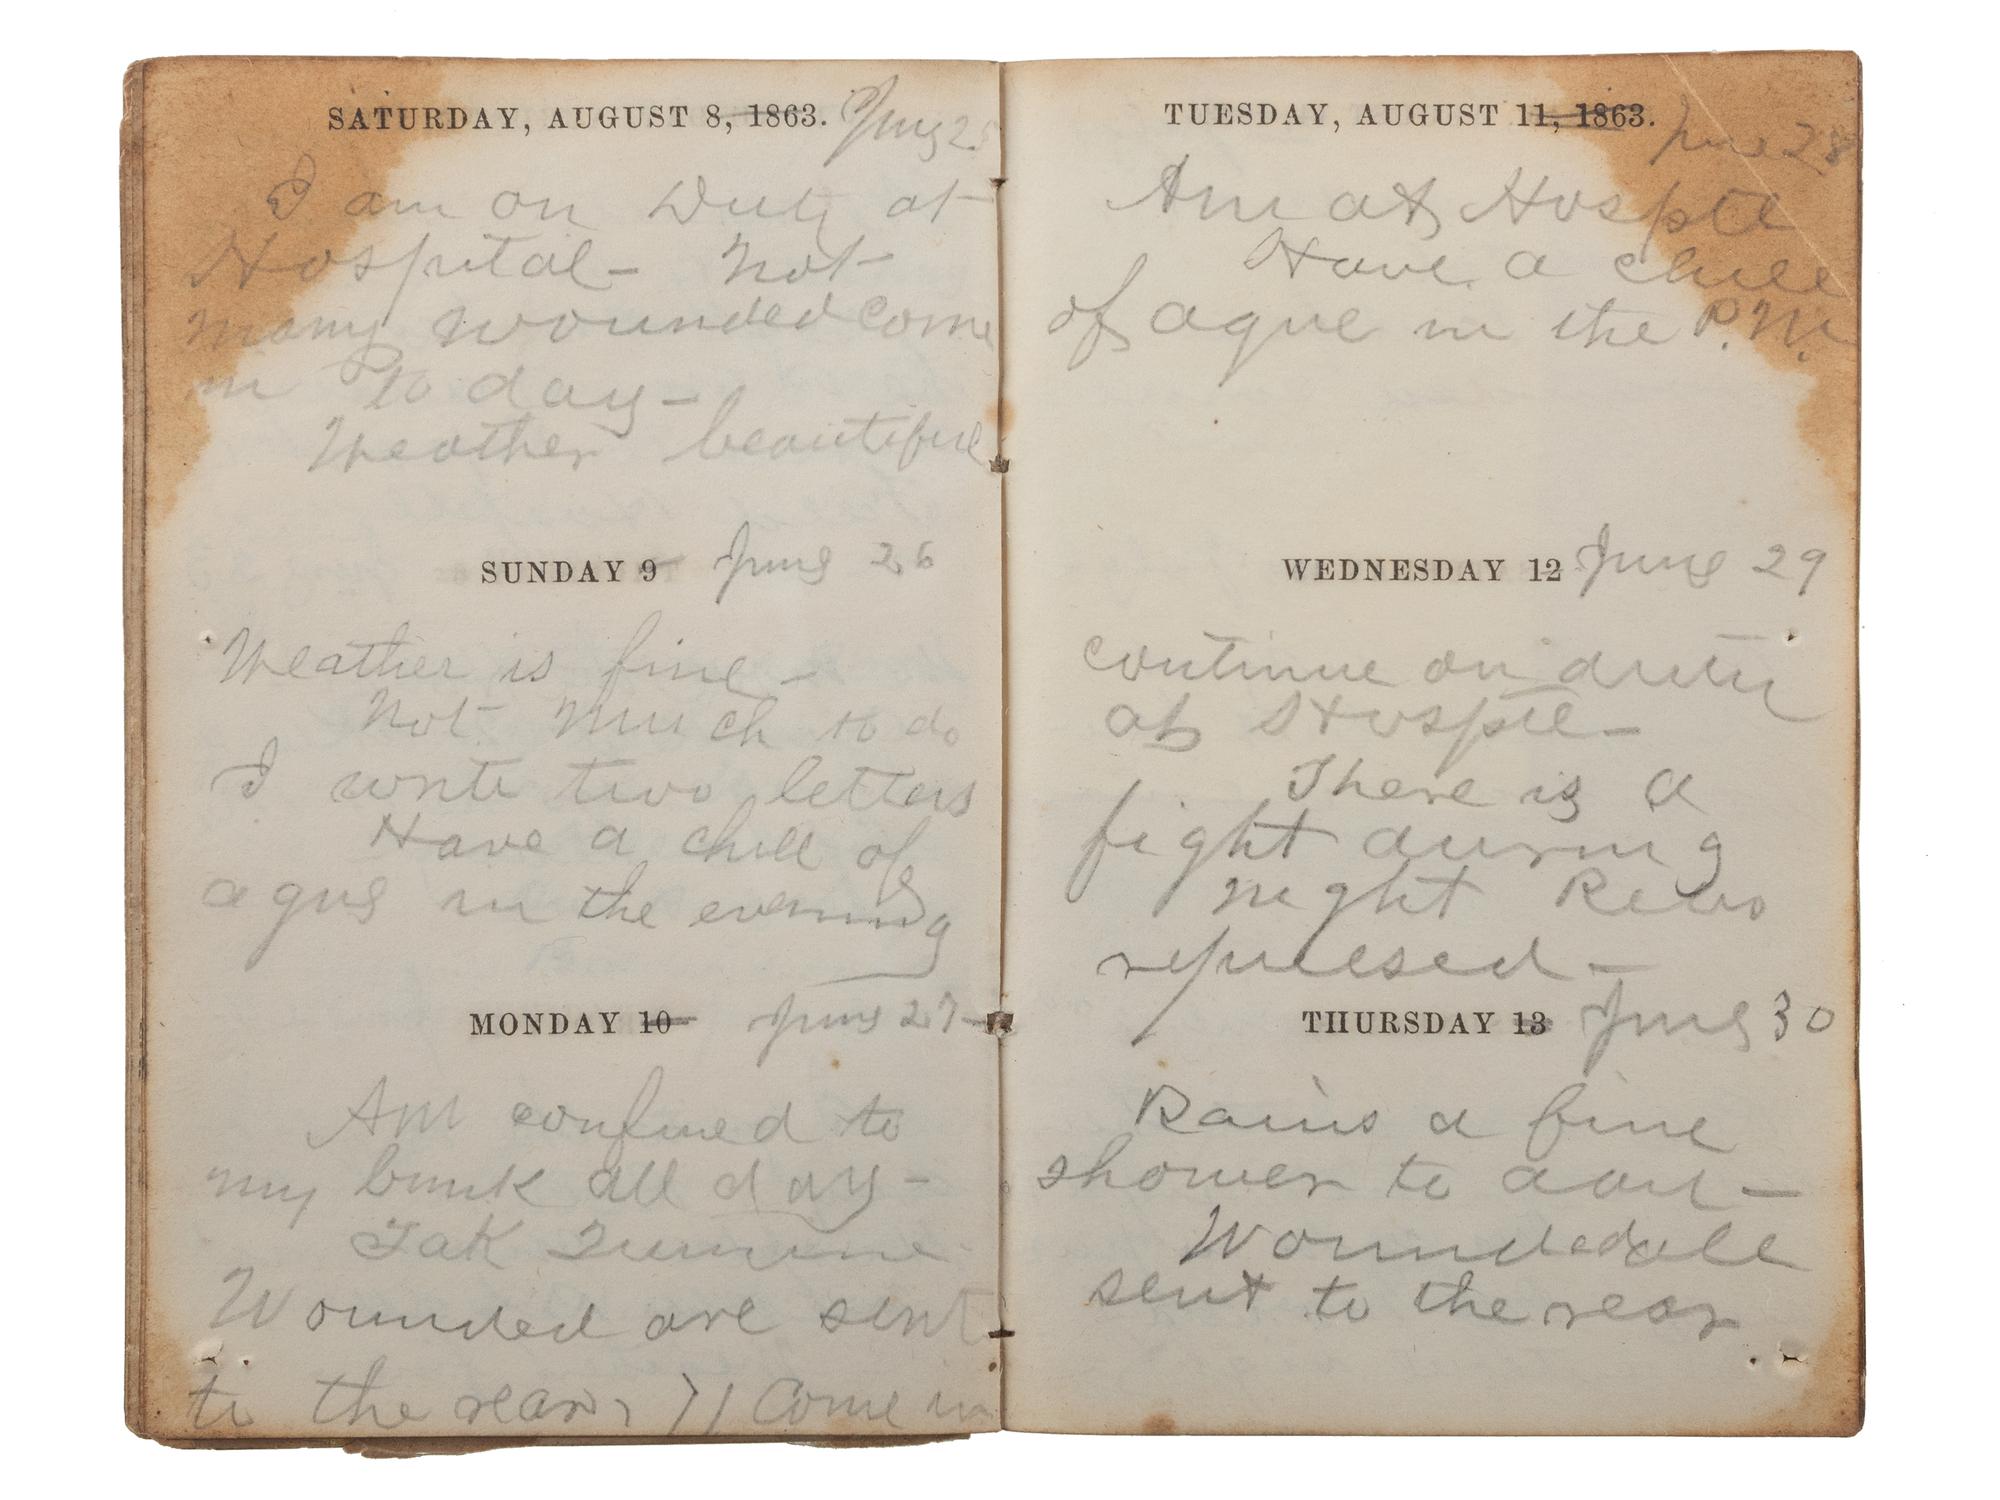 SATURDAY, AUGUST 8, 1863. June 25
I am on Duty at
Hospital - Not
many wounded come
in to day -
Weather beautiful
SUNDAY 9 June 26
Weather is fine -
Not Much to do
I write two letters
Have a chill of
ague in the evening
MONDAY 10 June 27 -
Am confined to
my bunk all day -
Tak Quinine
Wounded are sent
to the rear, 71 Come in
TUESDAY, AUGUST 11, 1863. June 28
Am at Hosptl
Have a chill
of ague in the P.M.
WEDNESDAY 12 June 29
continue on duty
at Hosptl -
There is a
fight during
night Rebs
repulsed -
THURSDAY 13 June 30
Rains a fine
shower to day -
Wounded all
sent to the rear